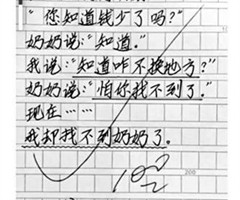 “你知道钱少了吗？”
奶奶说：“知道。”
我说：“知道咋不换地方？”
奶奶说：“怕你找不到了。”
现在……
我却找不到奶奶了。
100